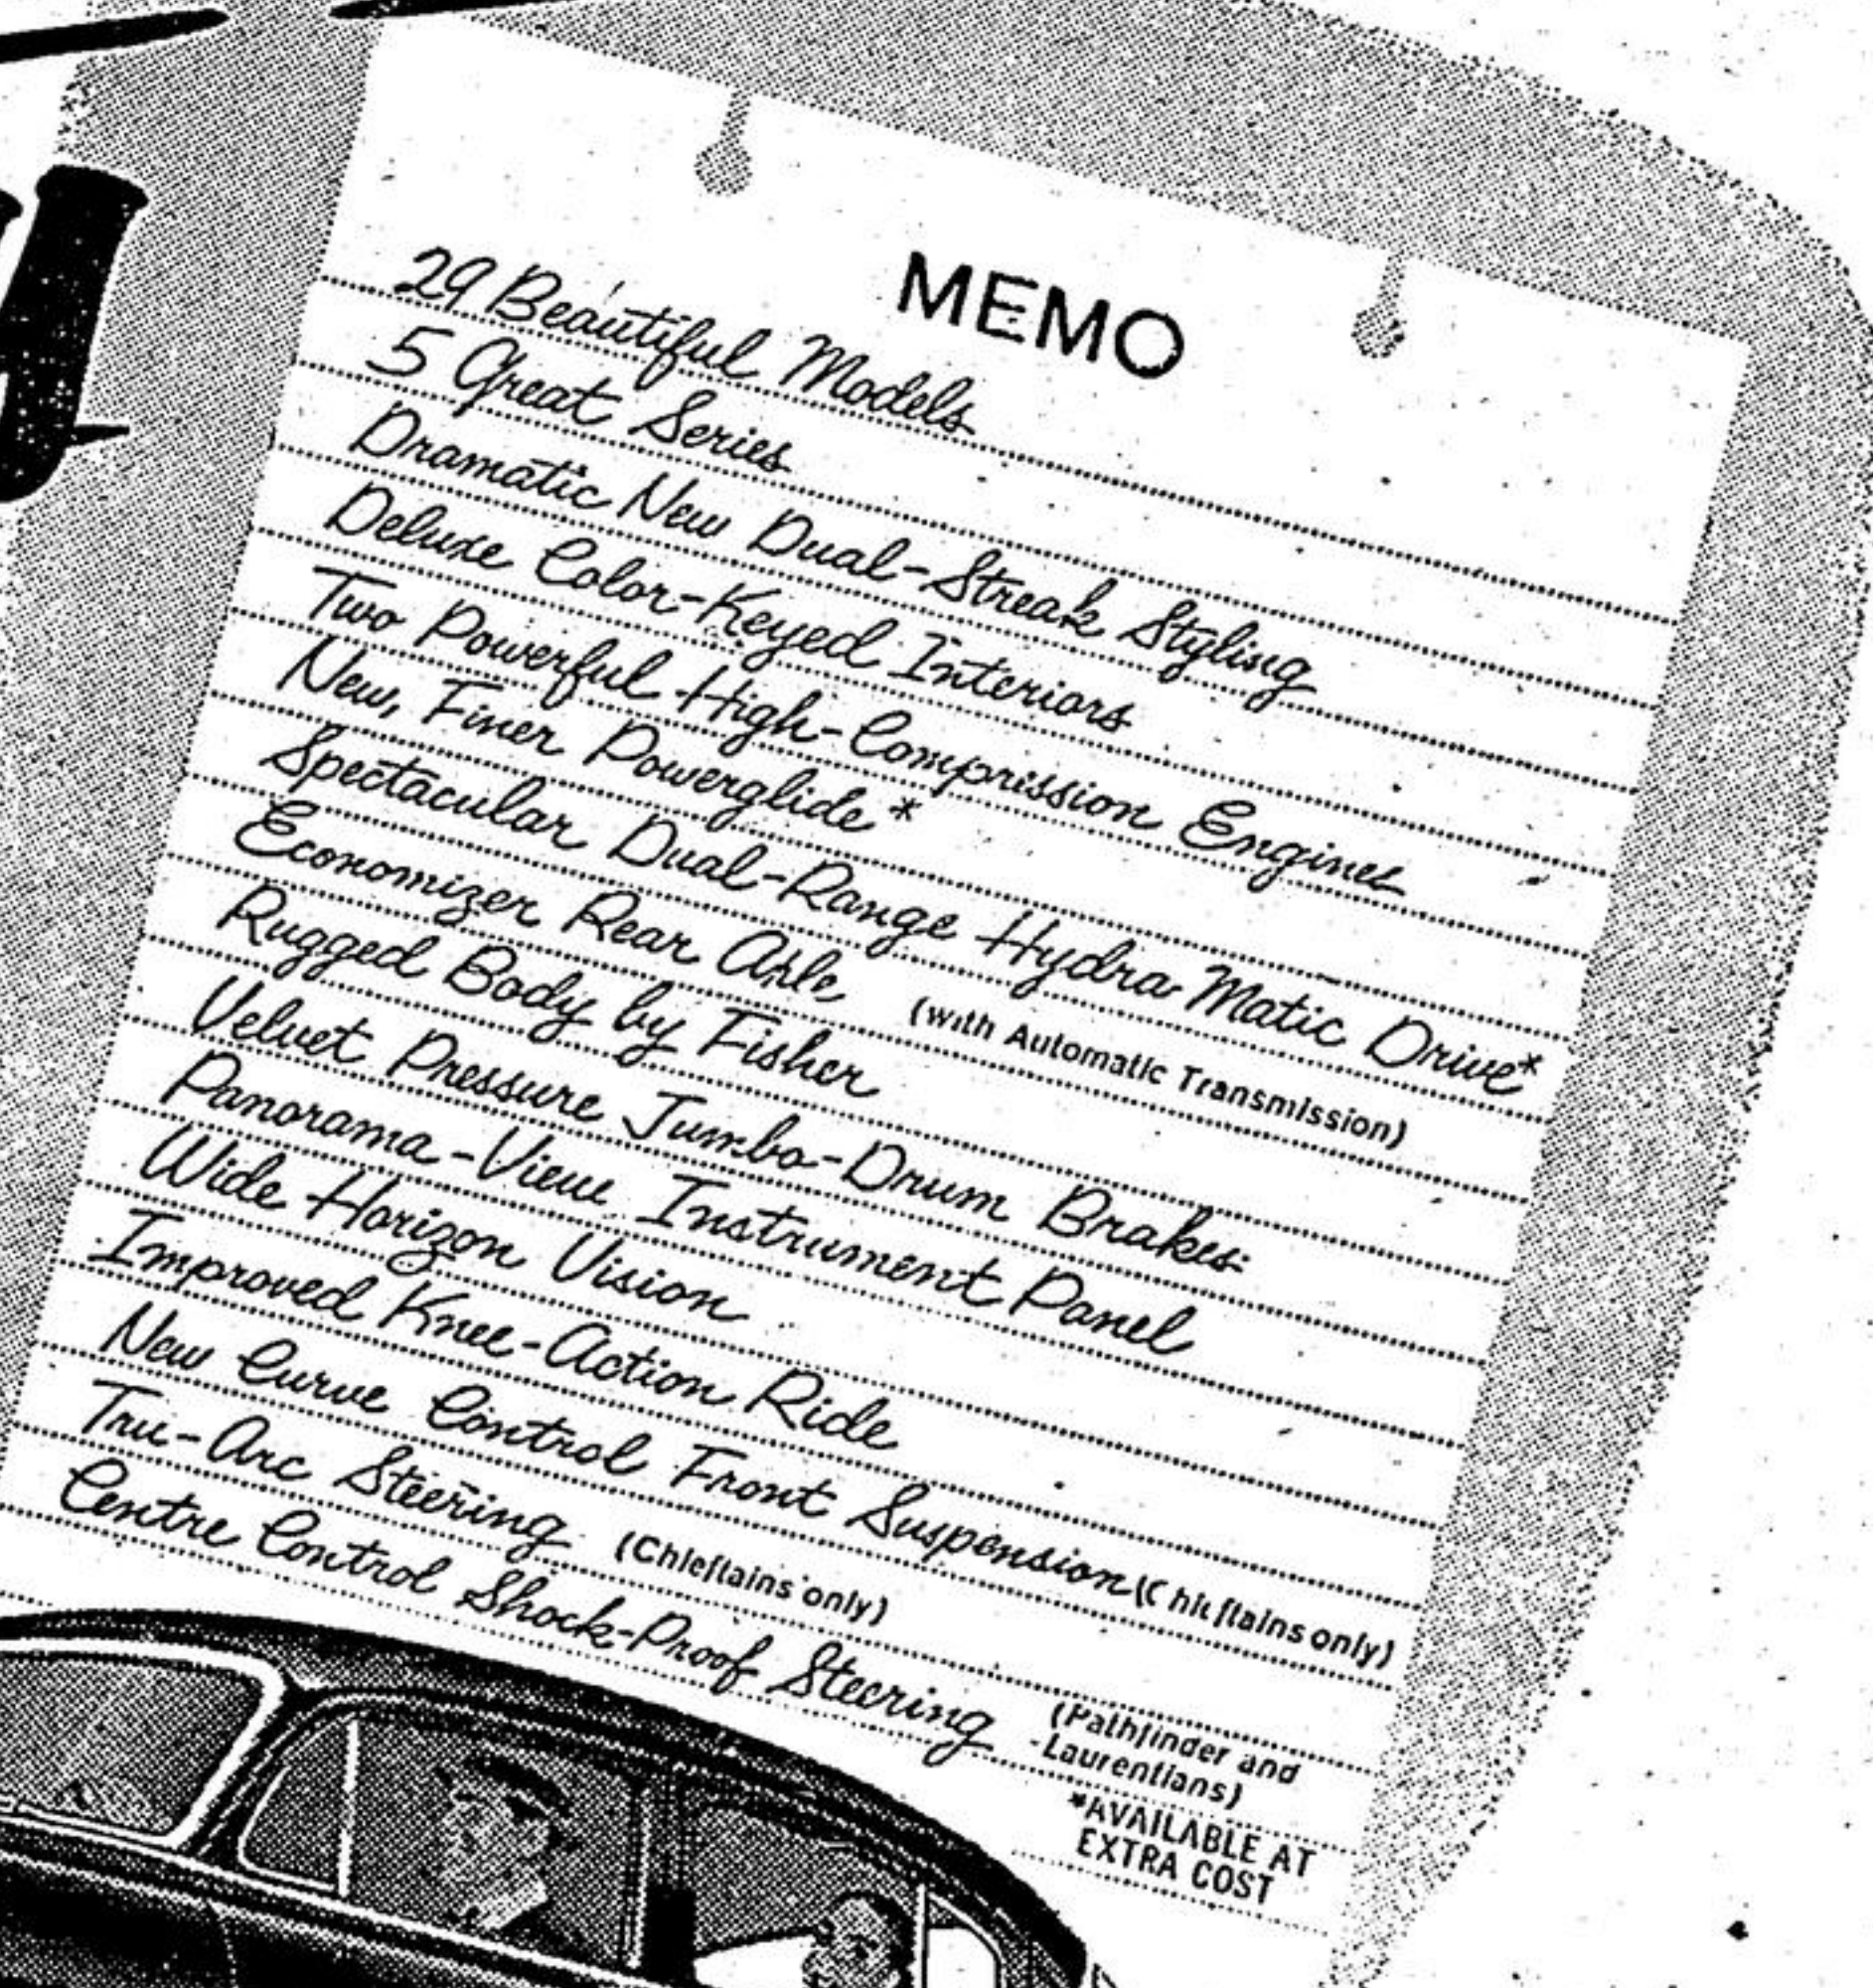 MEMO
29 Beautiful Models
5 Great Series
Dramatic New Dual-Streak Styling
Deluxe Color-Keyed Interiors
Two Powerful High-Compression Engines
New, Finer Powerglide*
Spectacular Dual-Range Hydra-Matic Drive*
Economizer Rear Axle (with Automatic Transmission)
Rugged Body by Fisher
Velvet Pressure Jumbo-Drum Brakes
Panorama-View Instrument Panel
Wide Horizon Vision
Improved Knee-Action Ride
New Curve Control Front Suspension (Chieftains only)
Tru-Arc Steering (Chieftains only)
Centre Control Shock-Proof Steering (Pathfinder and
Laurentians)
*AVAILABLE AT
EXTRA COST